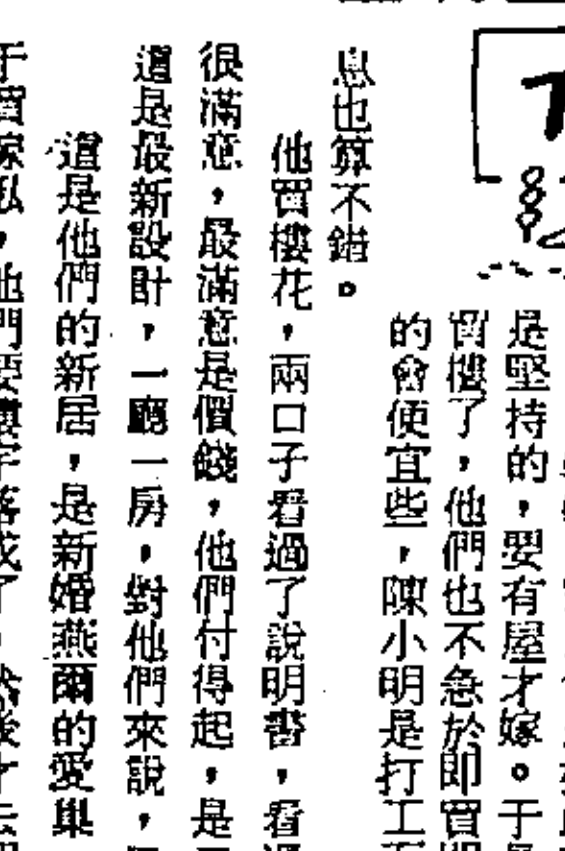 是堅持的，要有屋才嫁。于
買樓了，他們也不急於即買
的會便宜些，陳小明是打工
息也算不錯。
他買樓花，兩口子看過了說明書，看
很滿意，最滿意是價錢，他們付得起，是
這是最新設計，一廳一房，對他們來說，
這是他們的新居，是新婚燕爾的愛巢
于買傢私，他們要樓宇落成了，然後才去